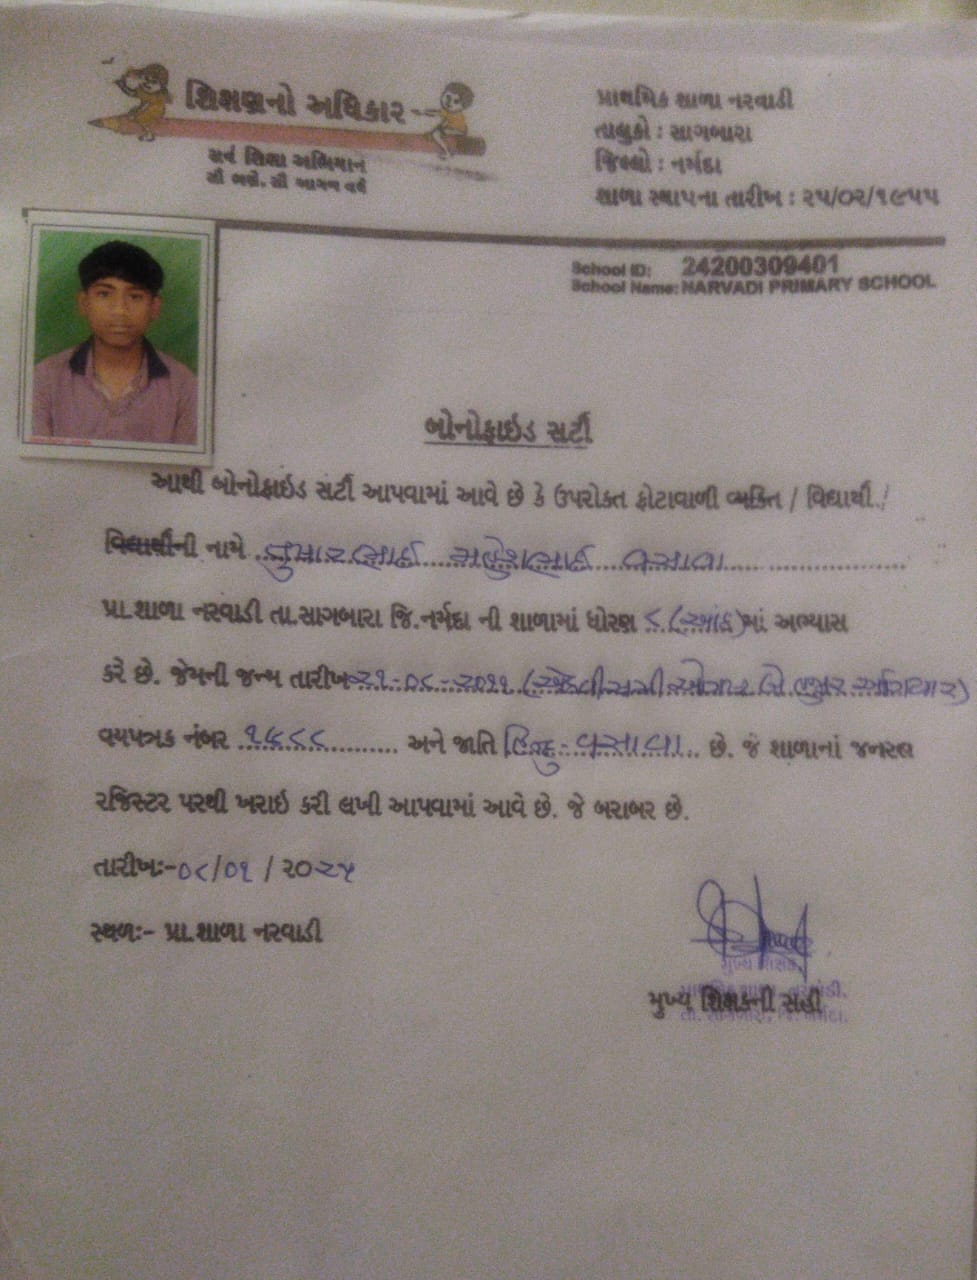 શિક્ષણનો અધિકાર
સર્વ શિક્ષા અભિયાન
સૌ ભણે. સૌ આગળ વધે
પ્રાથમિક શાળા નરવાડી
તાલુકો : સાગબારા
જિલ્લો : નર્મદા
શાળા સ્થાપના તારીખ : ૨૫/૦૨/૧૯૫૫
School ID: 24200309401
School Name: NARVADI PRIMARY SCHOOL
બોનોફાઇડ સર્ટી
આથી બોનોફાઇડ સર્ટી આપવામાં આવે છે કે ઉપરોક્ત ફોટાવાળી વ્યક્તિ / વિદ્યાર્થી /
વિદ્યાર્થીની નામે મહેશભાઈ વસાવા
પ્રા.શાળા નરવાડી તા.સાગબારા જિ.નર્મદા ની શાળામાં ધોરણ ૮ (આઠ) માં અભ્યાસ
કરે છે. જેમની જન્મ તારીખ ૨૧-૦૮-૨૦૧૧ બે હજાર અગિયાર)
વયપત્રક નંબર ૧૫૮૮ અને જાતિ હિન્દુ - વસાવા છે. જે શાળાનાં જનરલ
રજિસ્ટર પરથી ખરાઇ કરી લખી આપવામાં આવે છે. જે બરાબર છે.
તારીખઃ-૦૮/૦૧ / ૨૦૨૫
સ્થળઃ- પ્રા.શાળા નરવાડી
મુખ્ય શિક્ષક
મુખ્ય શિક્ષકની સહી
તા. સાગબારા, જિ. નર્મદા.